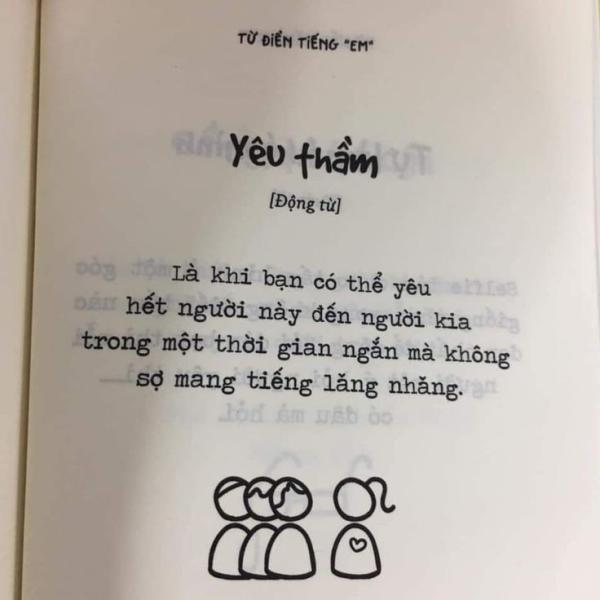 TỪ ĐIỂN TIẾNG "EM"
Yêu thầm
[Động từ]
Là khi bạn có thể yêu
hết người này đến người kia
trong một thời gian ngắn mà không
sợ mang tiếng lăng nhăng.